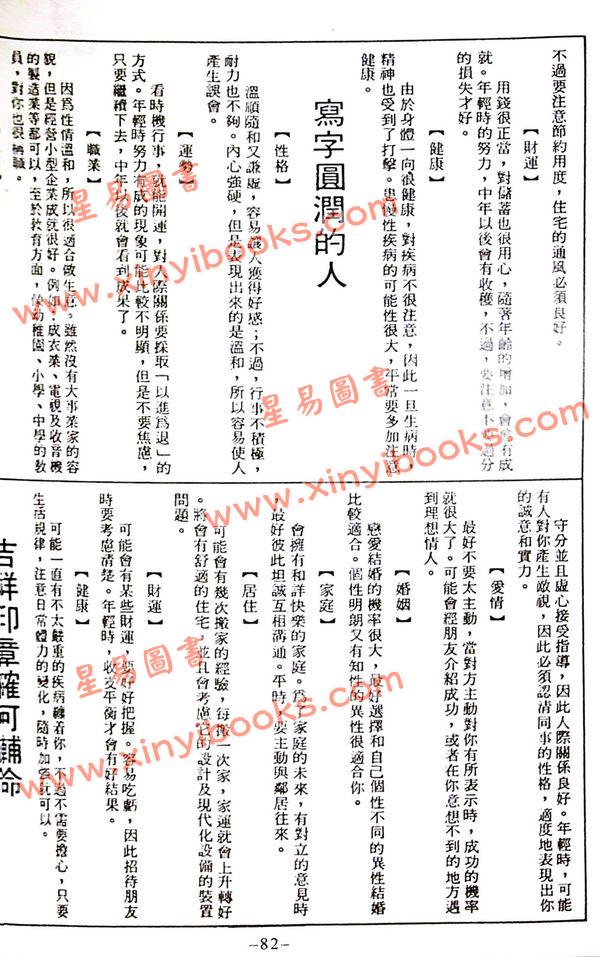 不過要注意節約用度，住宅的通風必須良好。
【財運】
用錢很正當，對儲蓄也很用心，隨著年齡的增加，會
就。年輕時的努力，中年以後會有收穫，不過，要注意不
的損失才好。
【健康】
由於身體一向很健康，對疾病不很注意，因此一旦生病時，
精神也受到了打擊。患慢性疾病的可能性很大，平常要多加注意
健康。
寫字圓潤的人
【性格】
溫順隨和又謙虛，容易讓人獲得好感；不過，行事不積極，
耐力也不夠。內心強硬，但是表現出來的是溫和，所以容易使人
產生誤會。
【運勢】
看時機行事，就能開運，對人際關係要採取「以進為退」的
方式。年輕時努力有成的現象可能比較不明顯，但是不要焦慮，
只要繼續下去，中年以後就會看到成果了。
【職業】
因為性情溫和，所以很適合做生意。雖然沒有大事業家的容
貌，但是經營小型企業成就很好。例如：成衣業、電視及收音機
的製造業等都可以，至於教育方面，像幼稚園、小學、中學的教
員，對你也很
守分並且虛心接受指導，因此人際關係良好。年輕時，可能
有人對你產生敵視，因此必須認清同事的性格，適度地表現出你
的誠意和實力。
【愛情】
最好不要太主動，當對方主動對你有所表示時，成功的機率
就很大了。可能會經朋友介紹成功，或者在你意想不到的地方遇
到理想情人。
【婚姻】
戀愛結婚的機率很大，最好選擇和自己個性不同的異性結婚
比較適合。個性明朗又有知性的異性很適合你。
【家庭】
會擁有和詳快樂的家庭。為了家庭的未來，有對立的意見時
，最好彼此坦誠互相溝通。平時，要主動與鄰居往來。
【居住】
可能會有幾次搬家的經驗，每搬一次家，家運就會上升轉好
。將會有舒適的住宅，並且會考慮它的設計及現代化設備的裝置
問題。
【財運】
可能會有某些財運，要好好把握。容易吃虧，因此招待朋友
時要考慮清楚。年輕時，收支平衡才會有好結果。
【健康】
可能一直有不太嚴重的疾病纏着你，不過不需要擔心，只要
生活規律，注意日常體力的變化，隨時加
吉祥印章確可輔命
-82-
星易圖書
www.xinyibooks.com
星易圖書
www.xinyibooks.com
星易圖書
www.xinyibooks.com